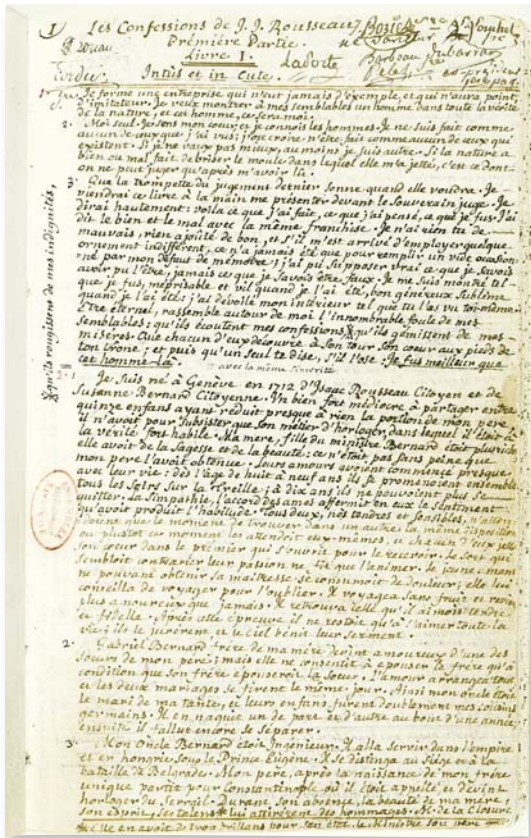 (1) Les Confessions de J. J. Rousseau.
Prémière Partie.
Livre I.
Intùs et in Cute.
Je forme une entreprise qui n'eut jamais d'exemple, et qui n'aura point
d'imitateur. Je veux montrer à mes semblables un homme dans toute la vérité
de la nature, et cet homme, ce sera moi.
2. Moi seul. Je sens mon cœur, et je connois les hommes. Je ne suis fait comme
aucun de ceux que j'ai vus; j'ose croire n'être fait comme aucun de ceux qui
existent. Si je ne vaux pas mieux, au moins je suis autre. Si la nature a
bien ou mal fait de briser le moule dans lequel elle m'a jetté, c'est ce dont
on ne peut juger qu'après m'avoir lu.
3. Que la trompette du jugement dernier sonne quand elle voudra. Je
viendrai ce livre à la main me présenter devant le Souverain juge. Je
dirai hautement: voila ce que j'ai fait, ce que j'ai pensé, ce que je fus. J'ai
dit le bien et le mal avec la même franchise. Je n'ai rien tu de
mauvais, rien ajouté de bon, et s'il m'est arrivé d'employer quelque
ornement indifférent, ce n'a jamais été que pour remplir un vide occasion-
né par mon défaut de mémoire; j'ai pu supposer vrai ce que je savois
avoir pu l'être, jamais ce que je savois être faux. Je me suis montré tel
que je fus, méprisable et vil quand je l'ai été, bon, généreux, sublime
quand je l'ai été: j'ai dévoilé mon intérieur tel que tu l'as vu toi-même.
Etre éternel, rassemble autour de moi l'innombrable foule de mes
semblables: qu'ils écoutent mes confessions, qu'ils gémissent de mes
misères. Que chacun d'eux découvre à son tour son cœur aux pieds de
ton trone; et puis qu'un seul te dise, s'il l'ose: Je fus meilleur que
cet homme-là.
avec la même sincérité
qu'ils rougissent de mes indignités,
Je suis né à Genève en 1712 d'Isaac Rousseau Citoyen et de
Susanne Bernard Citoyenne. Un bien fort médiocre à partager entre
quinze enfans ayant réduit presque à rien la portion de mon pere,
il n'avoit pour subsister que son métier d'horloger, dans lequel il étoit à
la vérité fort habile. Ma mere, fille du ministre Bernard étoit plus riche
elle avoit de la sagesse et de la beauté: ce n'étoit pas sans peine que
mon pere l'avoit obtenue. Leurs amours avoient commencé presque
avec leur vie: dès l'âge de huit à neuf ans ils se promenoient ensemble
tous les soirs sur la Treille; à dix ans ils ne pouvoient plus se
quitter. La simpathie, l'accord des ames affermit en eux le sentiment
qu'avoit produit l'habitude. Tous deux, nés tendres et sensibles, n'atten-
doient que le moment de trouver dans un autre la même disposition
ou plustot ce moment les attendoit eux-mêmes, et chacun d'eux jetta
son cœur dans le prémier qui s'ouvrit pour le recevoir. Le sort qui
sembloit contrarier leur passion ne fit que l'animer. Le jeune amant
ne pouvant obtenir sa maitresse se consumoit de douleur; elle lui
conseilla de voyager pour l'oublier. Il voyagea sans fruit et revint
plus amoureux que jamais. Il retrouva celle qu'il aimoit tendre
et fidelle. Après cette épreuve il ne restoit qu'à s'aimer toute la
vie; ils le jurèrent, et le Ciel bénit leur serment.
2. Gabriel Bernard frére de ma mére devint amoureux d'une des
sœurs de mon pere; mais elle ne consentit à épouser le frére qu'à
condition que son frére épouseroit la sœur. L'amour arrangea tout,
et les deux mariages se firent le même jour. Ainsi mon oncle étoit
le mari de ma tante, et leurs enfans furent doublement mes cousins
germains. Il en naquit un de part et d'autre au bout d'une année
ensuite il fallut encore se séparer.
3. Mon Oncle Bernard étoit Ingénieur: Il alla servir dans l'empire
et en hongrie sous le Prince Eugène. Il se distingua au siège et à la
bataille de Belgrade. Mon pere, après la naissance de mon frére
unique partit pour Constantinople où il étoit appellé, et devint
horloger du Serrail. Durant son absence, la beauté de ma mere,
son esprit, ses talens lui attirèrent des hommages. M. de la Closure
elle en avoit de trop brillans pour son état, le Ministre son pére